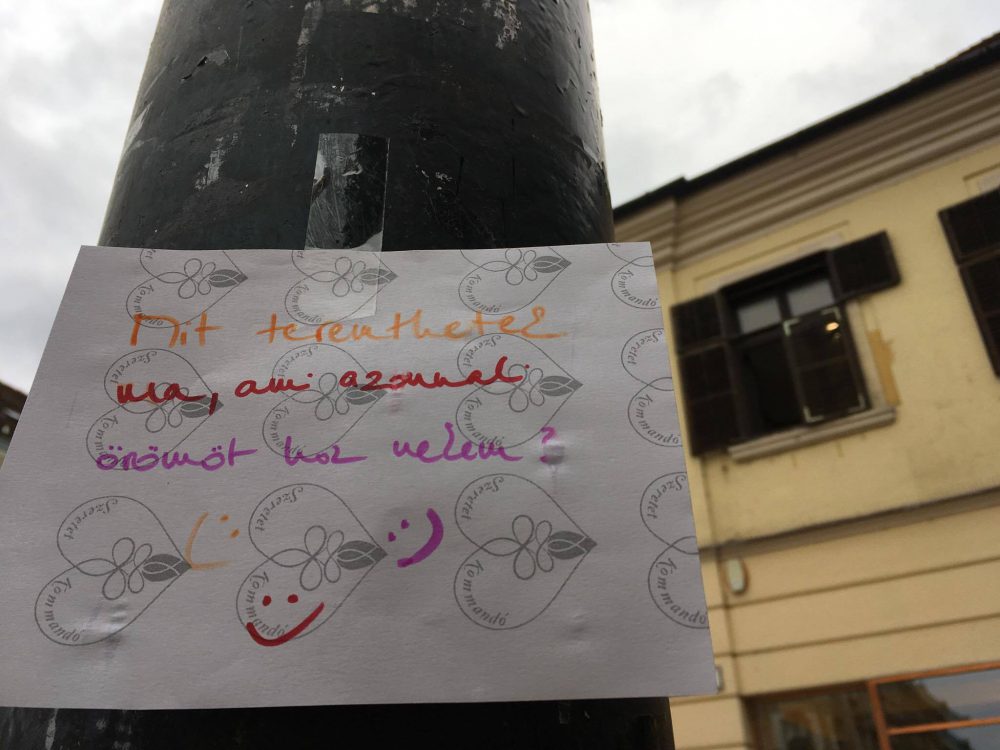 Kommandó
Kommandó
Kommandó
Kommandó
Mit teremthetek
ma, ami azonnali
örömöt hoz nekem?
Szeretet
Kommandó
Szeretet
Kommandó
Szeretet
Kommandó
Szeretet
Kommandó